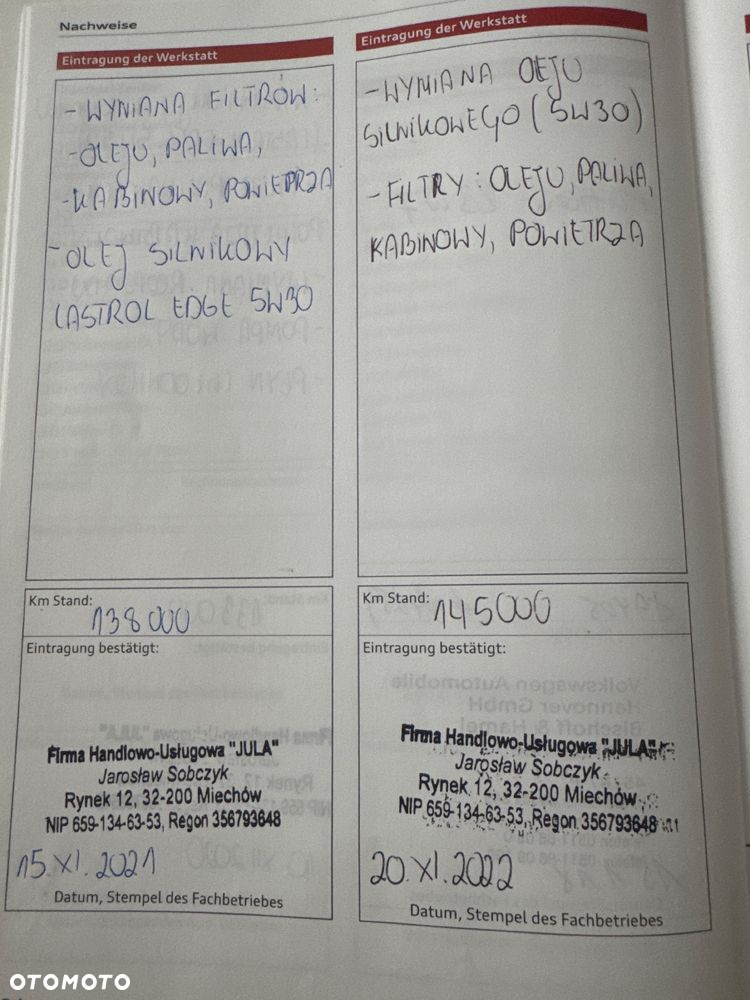 Nachweise
Eintragung der Werkstatt
- WYMIANA FILTRÓW:
- OLEJU, PALIWA,
- KABINOWY, POWIETRZA
- OLEJ SILNIKOWY
CASTROL EDGE 5W30
Km Stand: 138000
Eintragung bestätigt:
Firma Handlowo-Usługowa "JULA"
Jarosław Sobczyk
Rynek 12, 32-200 Miechów
NIP 659-134-63-53, Regon 356793648
15.XI.2021
Datum, Stempel des Fachbetriebes
Eintragung der Werkstatt
- WYMIANA OLEJU
SILNIKOWEGO (5W30)
- FILTRY: OLEJU, PALIWA,
KABINOWY, POWIETRZA
Km Stand: 145000
Eintragung bestätigt:
Firma Handlowo-Usługowa "JULA"
Jarosław Sobczyk
Rynek 12, 32-200 Miechów
NIP 659-134-63-53, Regon 356793648
20.XI.2022
Datum, Stempel des Fachbetriebes
OTOMOTO